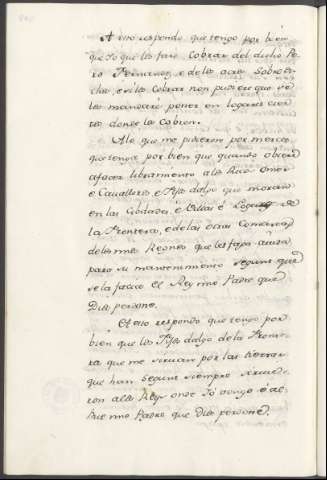 A esto respondo que tengo por bien
que Yo que les faré cobrar del dicho Pe
ro Fernandez, e de las otras sobre
e si les cobrar non pudiere que se
les mandaré poner en logares cier
tos donde los cobren.
A lo que me pidieron por merced
que tenga por bien que quando obiere
a facer libramiento a los Ricos Omes
e Cavalleros e Fijos dalgo que moran
en las Cibdades, e Villas e Logares de
la Frontera, e de las otras Comarcas
de los mios Regnos que les faga
para su mantenimiento segunt que
se la facie El Rey mio Padre que
Dios perdone.
A esto respondo que tengo por
bien que los Fijos dalgo de la Fronte
ra que me sirvan por las tierras
que han segunt siempre sirvie
ron a los Reyes onde Yo vengo é al
Rey mio Padre que Dios perdone.